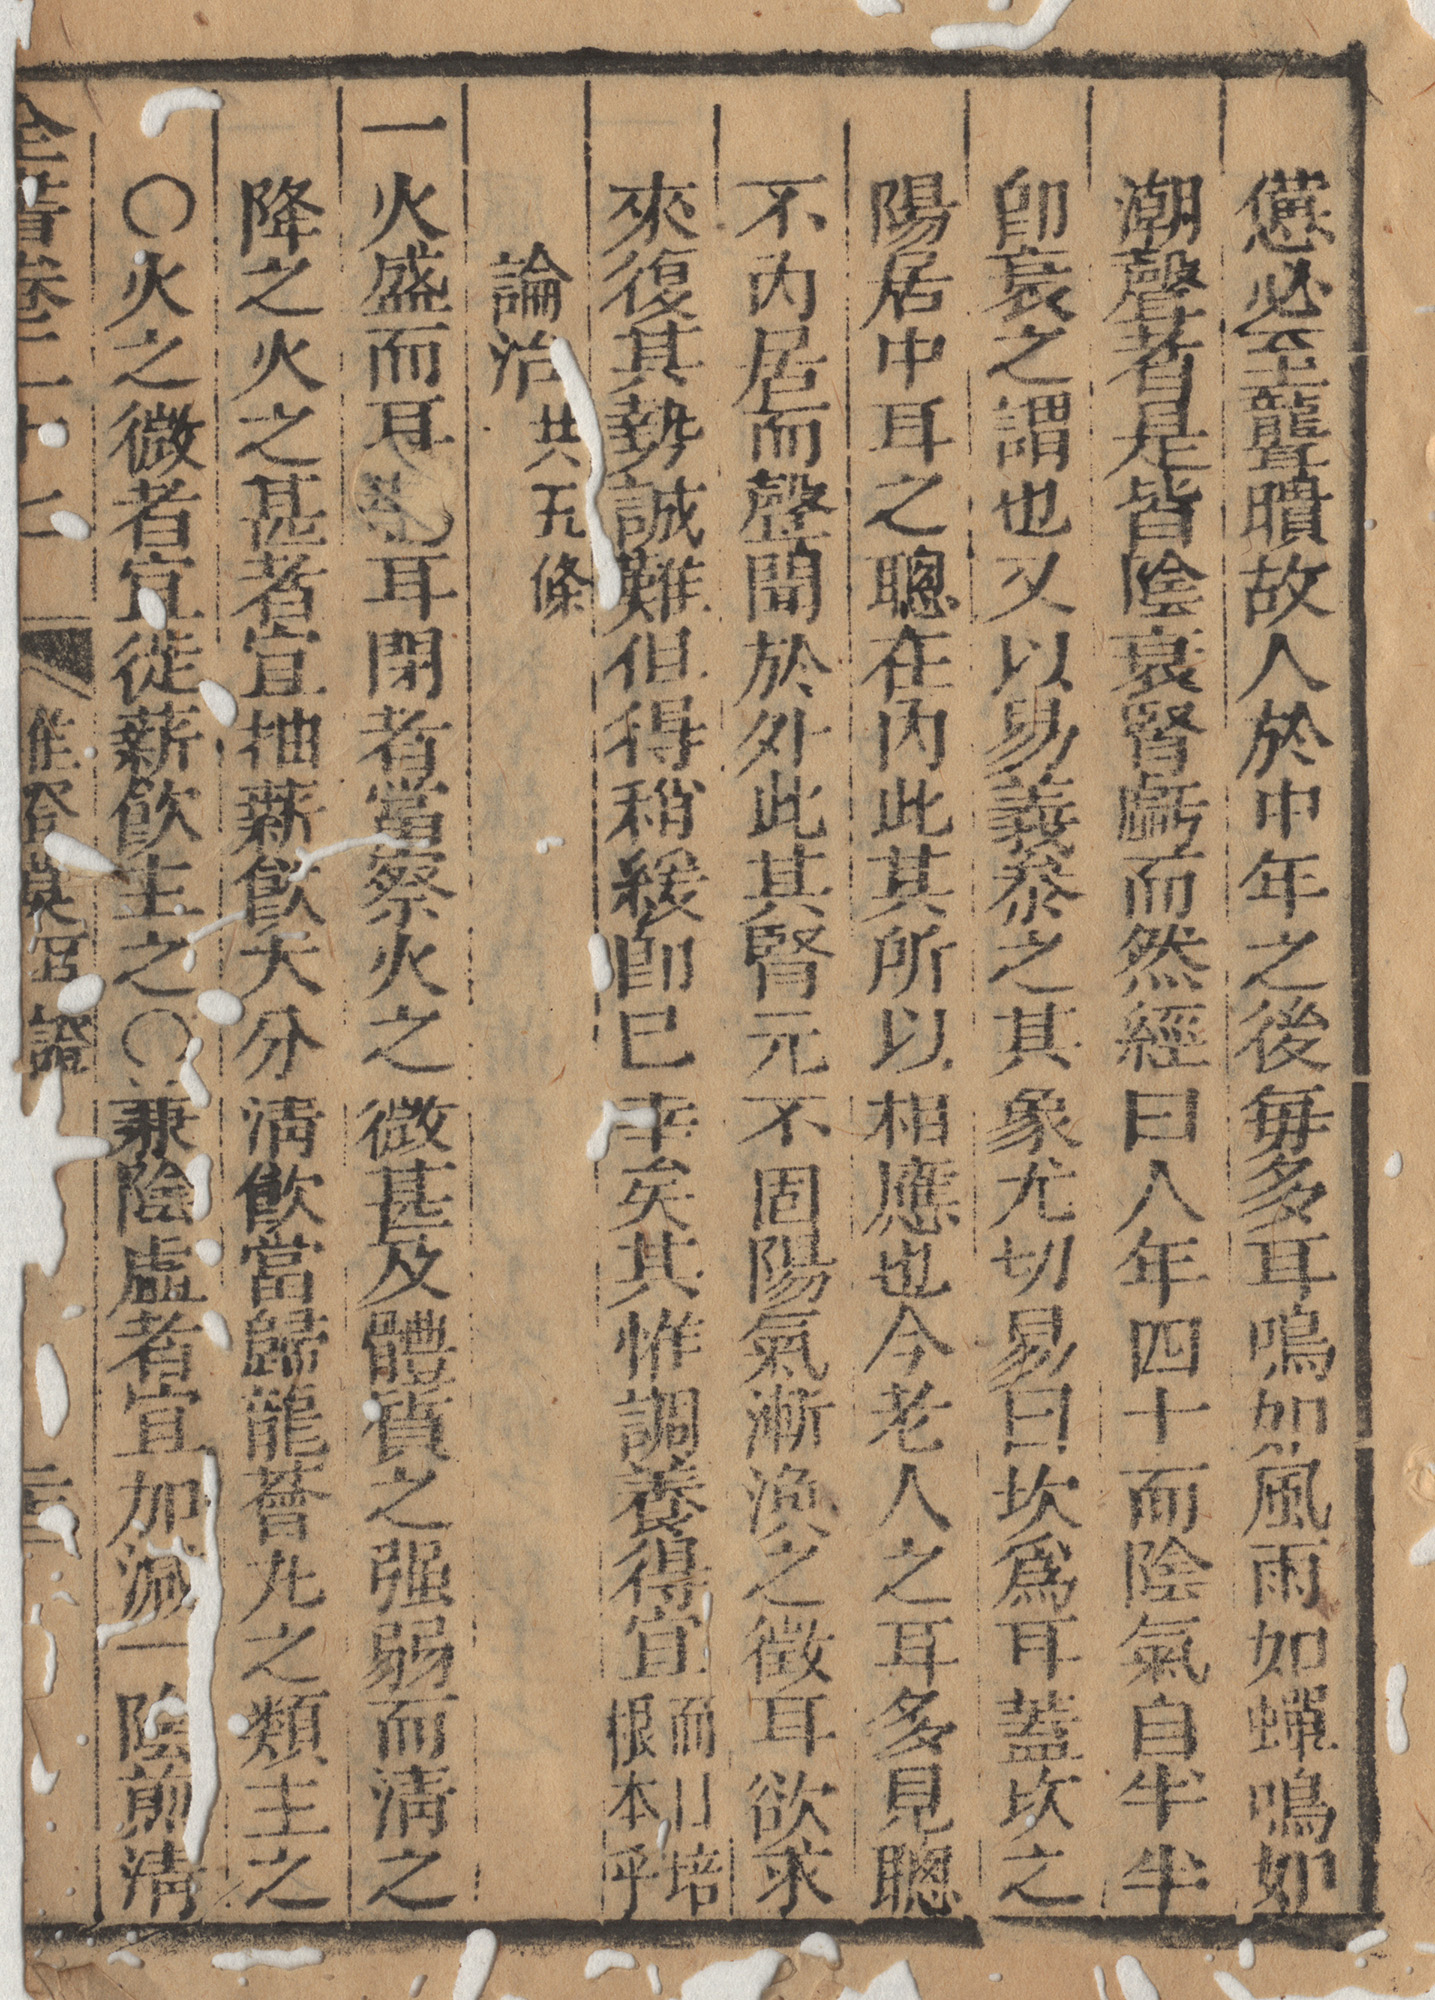 憊必至聾聵故人於中年之後每多耳鳴如風雨如蟬鳴如
潮聲者是皆陰衰腎虧而然經曰人年四十而陰氣自半半
卽衰之謂也又以易義參之其象尤切易曰坎爲耳蓋坎之
陽居中耳之聰在內此其所以相應也今老人之耳多見聰
不內居而聲聞於外此其腎元不固陽氣漸渙之徵耳欲求
來復其勢誠難但得稍緩卽已幸矣其惟調養得宜而日培根本乎
論治共五條
一火盛而耳鳴耳閉者當察火之微甚及體質之强弱而淸之
降之火之甚者宜抽薪飮大分淸飮當歸龍薈丸之類主之
〇火之微者宜徙薪飮主之〇兼陰虛者宜加減一陰煎淸
全書卷二十七 雜證謨 證